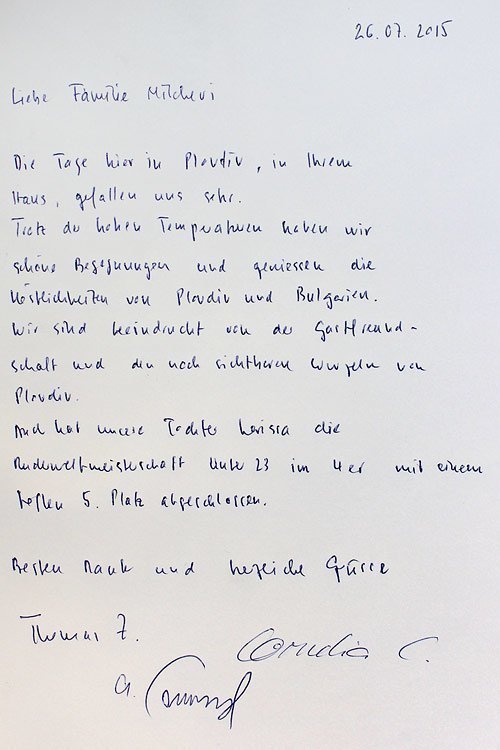 26.07.2015
Liebe Familie Mitchevi
Die Tage hier in Plovdiv, in Ihrem
Haus, gefallen uns sehr.
Trotz der hohen Temperaturen haben wir
schöne Begegnungen und geniessen die
Köstlichkeiten von Plovdiv und Bulgarien.
Wir sind beeindruckt von der Gastfreund-
schaft und den noch sichtbaren Wurzeln von
Plovdiv.
Auch hat unsere Tochter Larissa die
Ruderweltmeisterschaft Unter 23 im 4er mit einem
tollen 5. Platz abgeschlossen.
Besten Dank und herzliche Grüsse
Thomas Z.
Cornelia C.